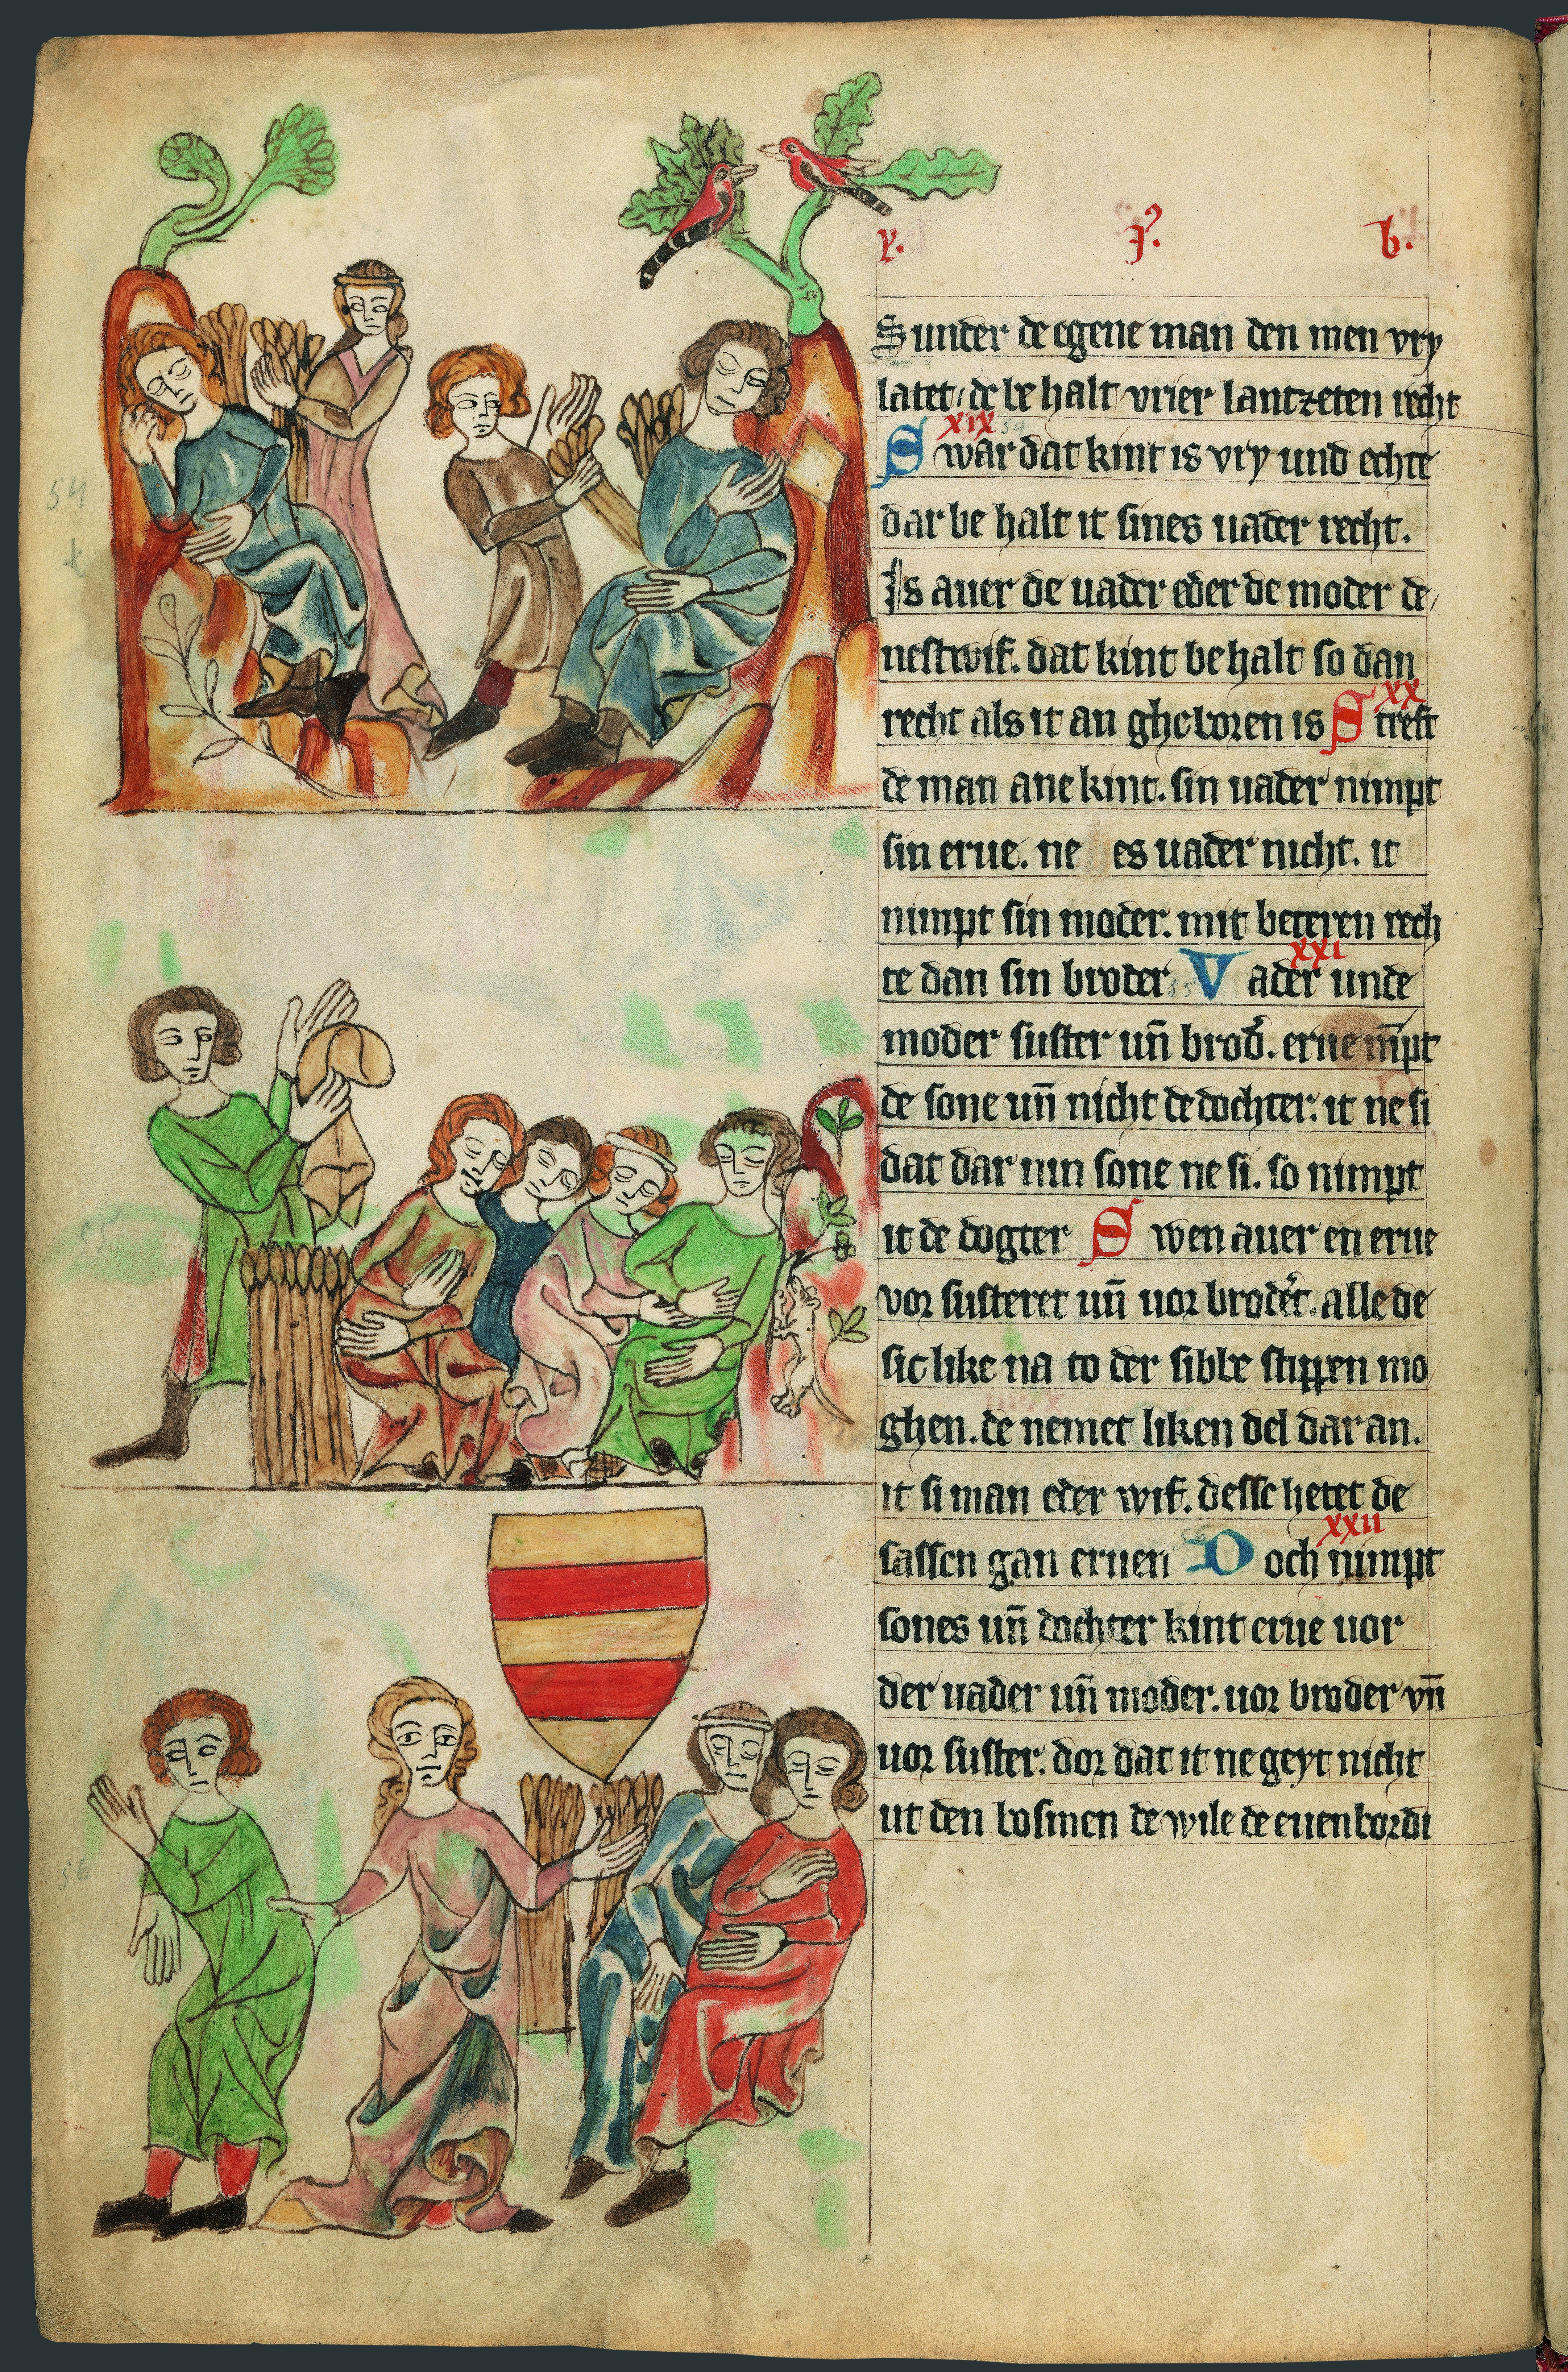 y. j. b.
Sunder de egene man den men vry
latet / de be halt vrier lantzeten recht
xix 54
Swar dat kint is vry und echte
dar be halt it sines uader recht.
Is auer de uader eder de moder de/
nestwif. dat kint be halt so dan
xx
recht als it an gheboren is Streft
de man ane kint. sin uader nimpt
sin erue. ne es uader nicht. it
nimpt sin moder. mit beteren rech
xxi
te dan sin broder 55 Vader unde
moder suster uñ brod'. erue nīpt
de sone uñ nicht de dochter. it ne si
dat dar nin sone ne si. so nimpt
it de dogter Swen auer en erue
vor susteret uñ uor broder't. alle de
sic like na to der sibbe stippen mo
ghen. de nemet liken del dar an.
it si man eder wif. desse hetet de
xxii
sassen gan eruen 56 Doch nimpt
sones uñ dochter kint erue uor
der uader uñ moder. uor broder vñ
uor suster. dor dat it ne geyt nicht
ut den bosmen de wile de euenbordi
54
55
56